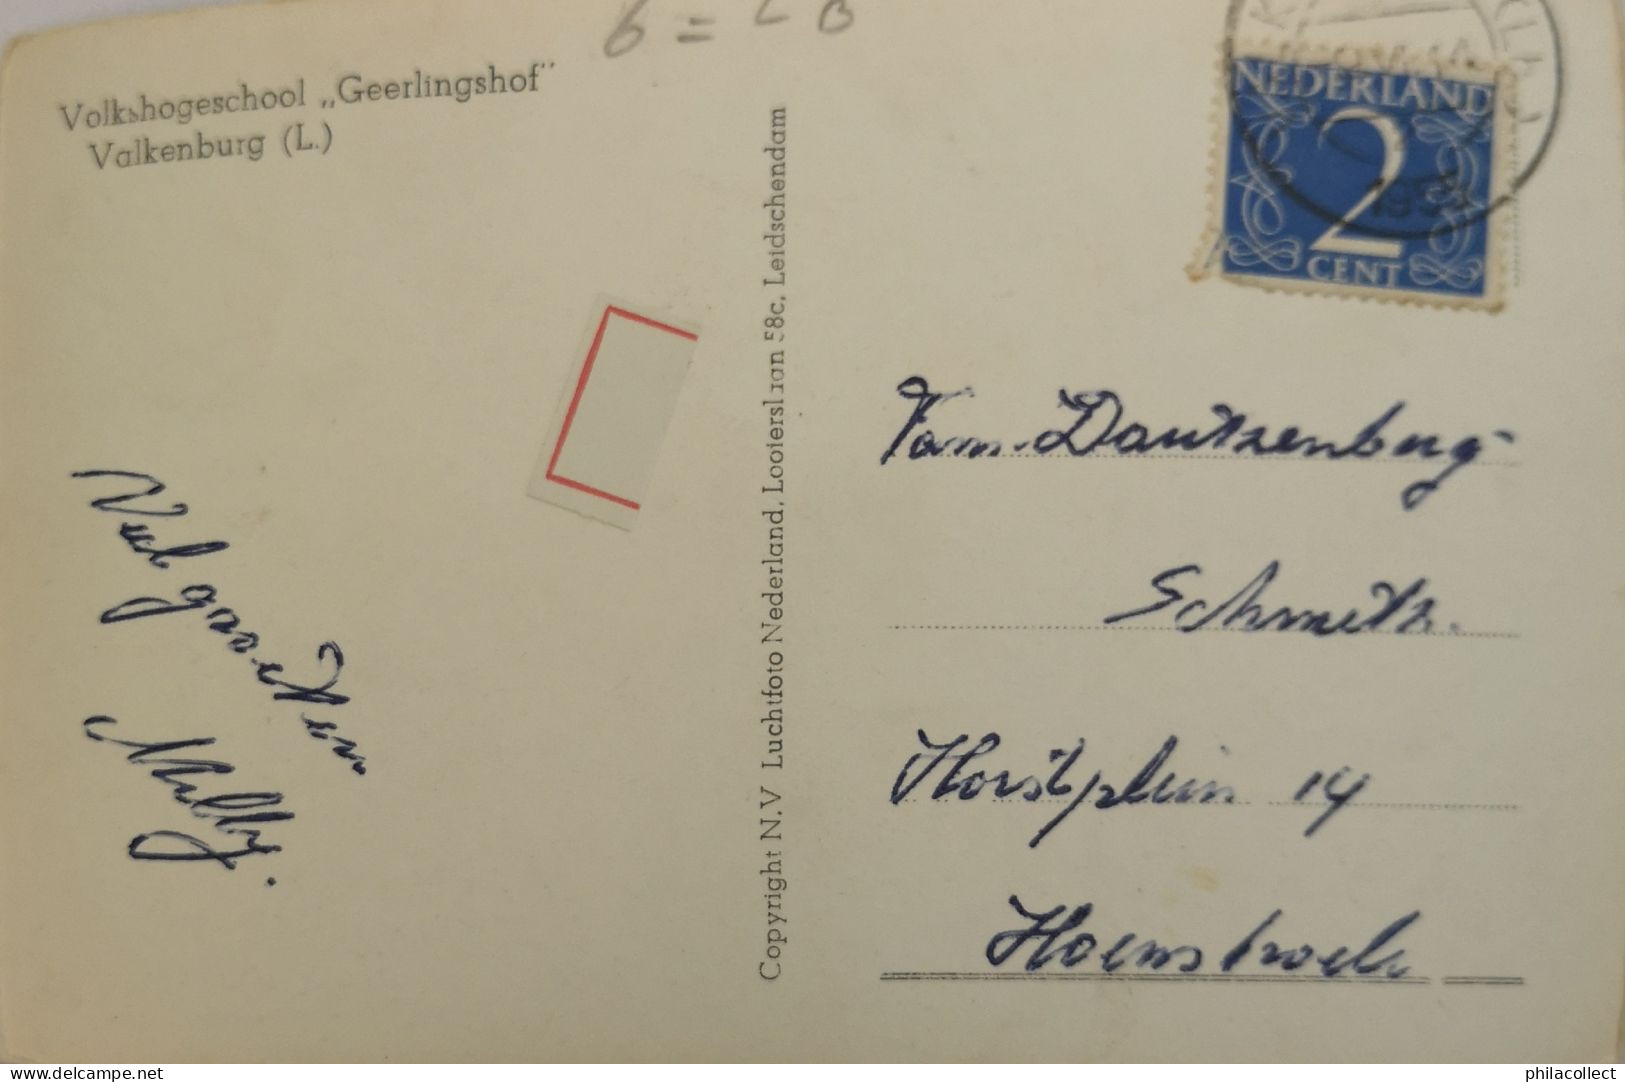 6 =
Volkshogeschool „Geerlingshof"
Valkenburg (L.)
NEDERLAND
2
CENT
Copyright N.V Luchtfoto Nederland, Looierslaan 58c, Leidschendam
Fam. Dautzenberg-
Schmetz.
Horstplein 14
Hoensbroek
Veel groeten
Nelly.
www.delcampe.net
philacollect